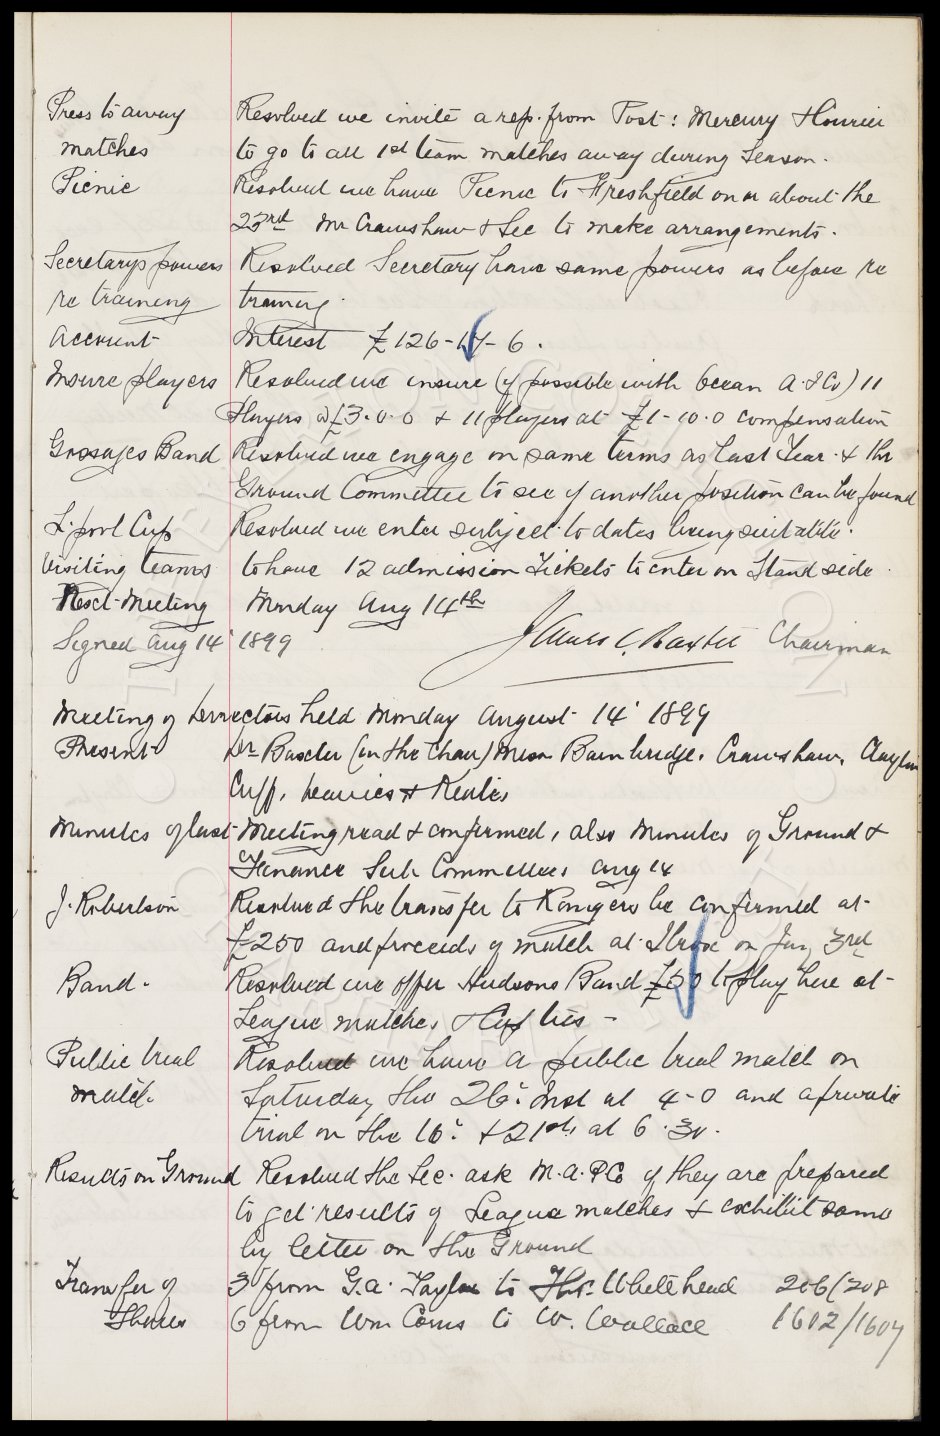 Press to away Resolved we invite a rep. from Post: Mercury & Courier
matches to go to all 1st team matches away during Season.
Picnic Resolved we have Picnic to Freshfield on or about the
23rd Mr Crawshaw & Sec to make arrangements.
Secretarys powers Resolved Secretary have same powers as before re
re training training.
Account Interest £126-17-6.
Insure players Resolved we insure (if possible with Ocean A. & Co) 11
Players @ £3.0.0 & 11 players at £1-10.0 compensation
Gossages Band Resolved we engage on same terms as last Year. & the
Ground Committee to see if another position can be found
L.pool Cup Resolved we enter subject to dates being suitable.
Visiting teams to have 12 admission Tickets to enter on Stand side.
Next Meeting Monday Aug 14th
Signed Aug 14 1899 James C. Baxter Chairman
Meeting of Directors held Monday August 14 1899
Present Dr Baxter (in the Chair) Messrs Bainbridge, Crawshaw, Clayton
Cuff, Davies & Keates
Minutes of last Meeting read & confirmed, also Minutes of Ground &
Finance Sub Committees Aug 14
J. Robertson Resolved the transfer to Rangers be confirmed at
£250 and proceeds of match at Ibrox on Jan 3rd
Band. Resolved we offer Hudsons Band £50 to play here at
League matches & Cup ties -
Public trial Resolved we have a public trial match on
match. Saturday the 26. Inst at 4-0 and a private
trial on the 16. & 21st at 6.30.
Results on Ground Resolved the Sec. ask M.A.P.Co if they are prepared
to get results of League matches & exhibit same
by letter on the Ground
Transfer of 3 from G.A. Taylor to Thos. Whitehead 206/208
Shares 6 from Wm Coms to W. Wallace 1602/1607